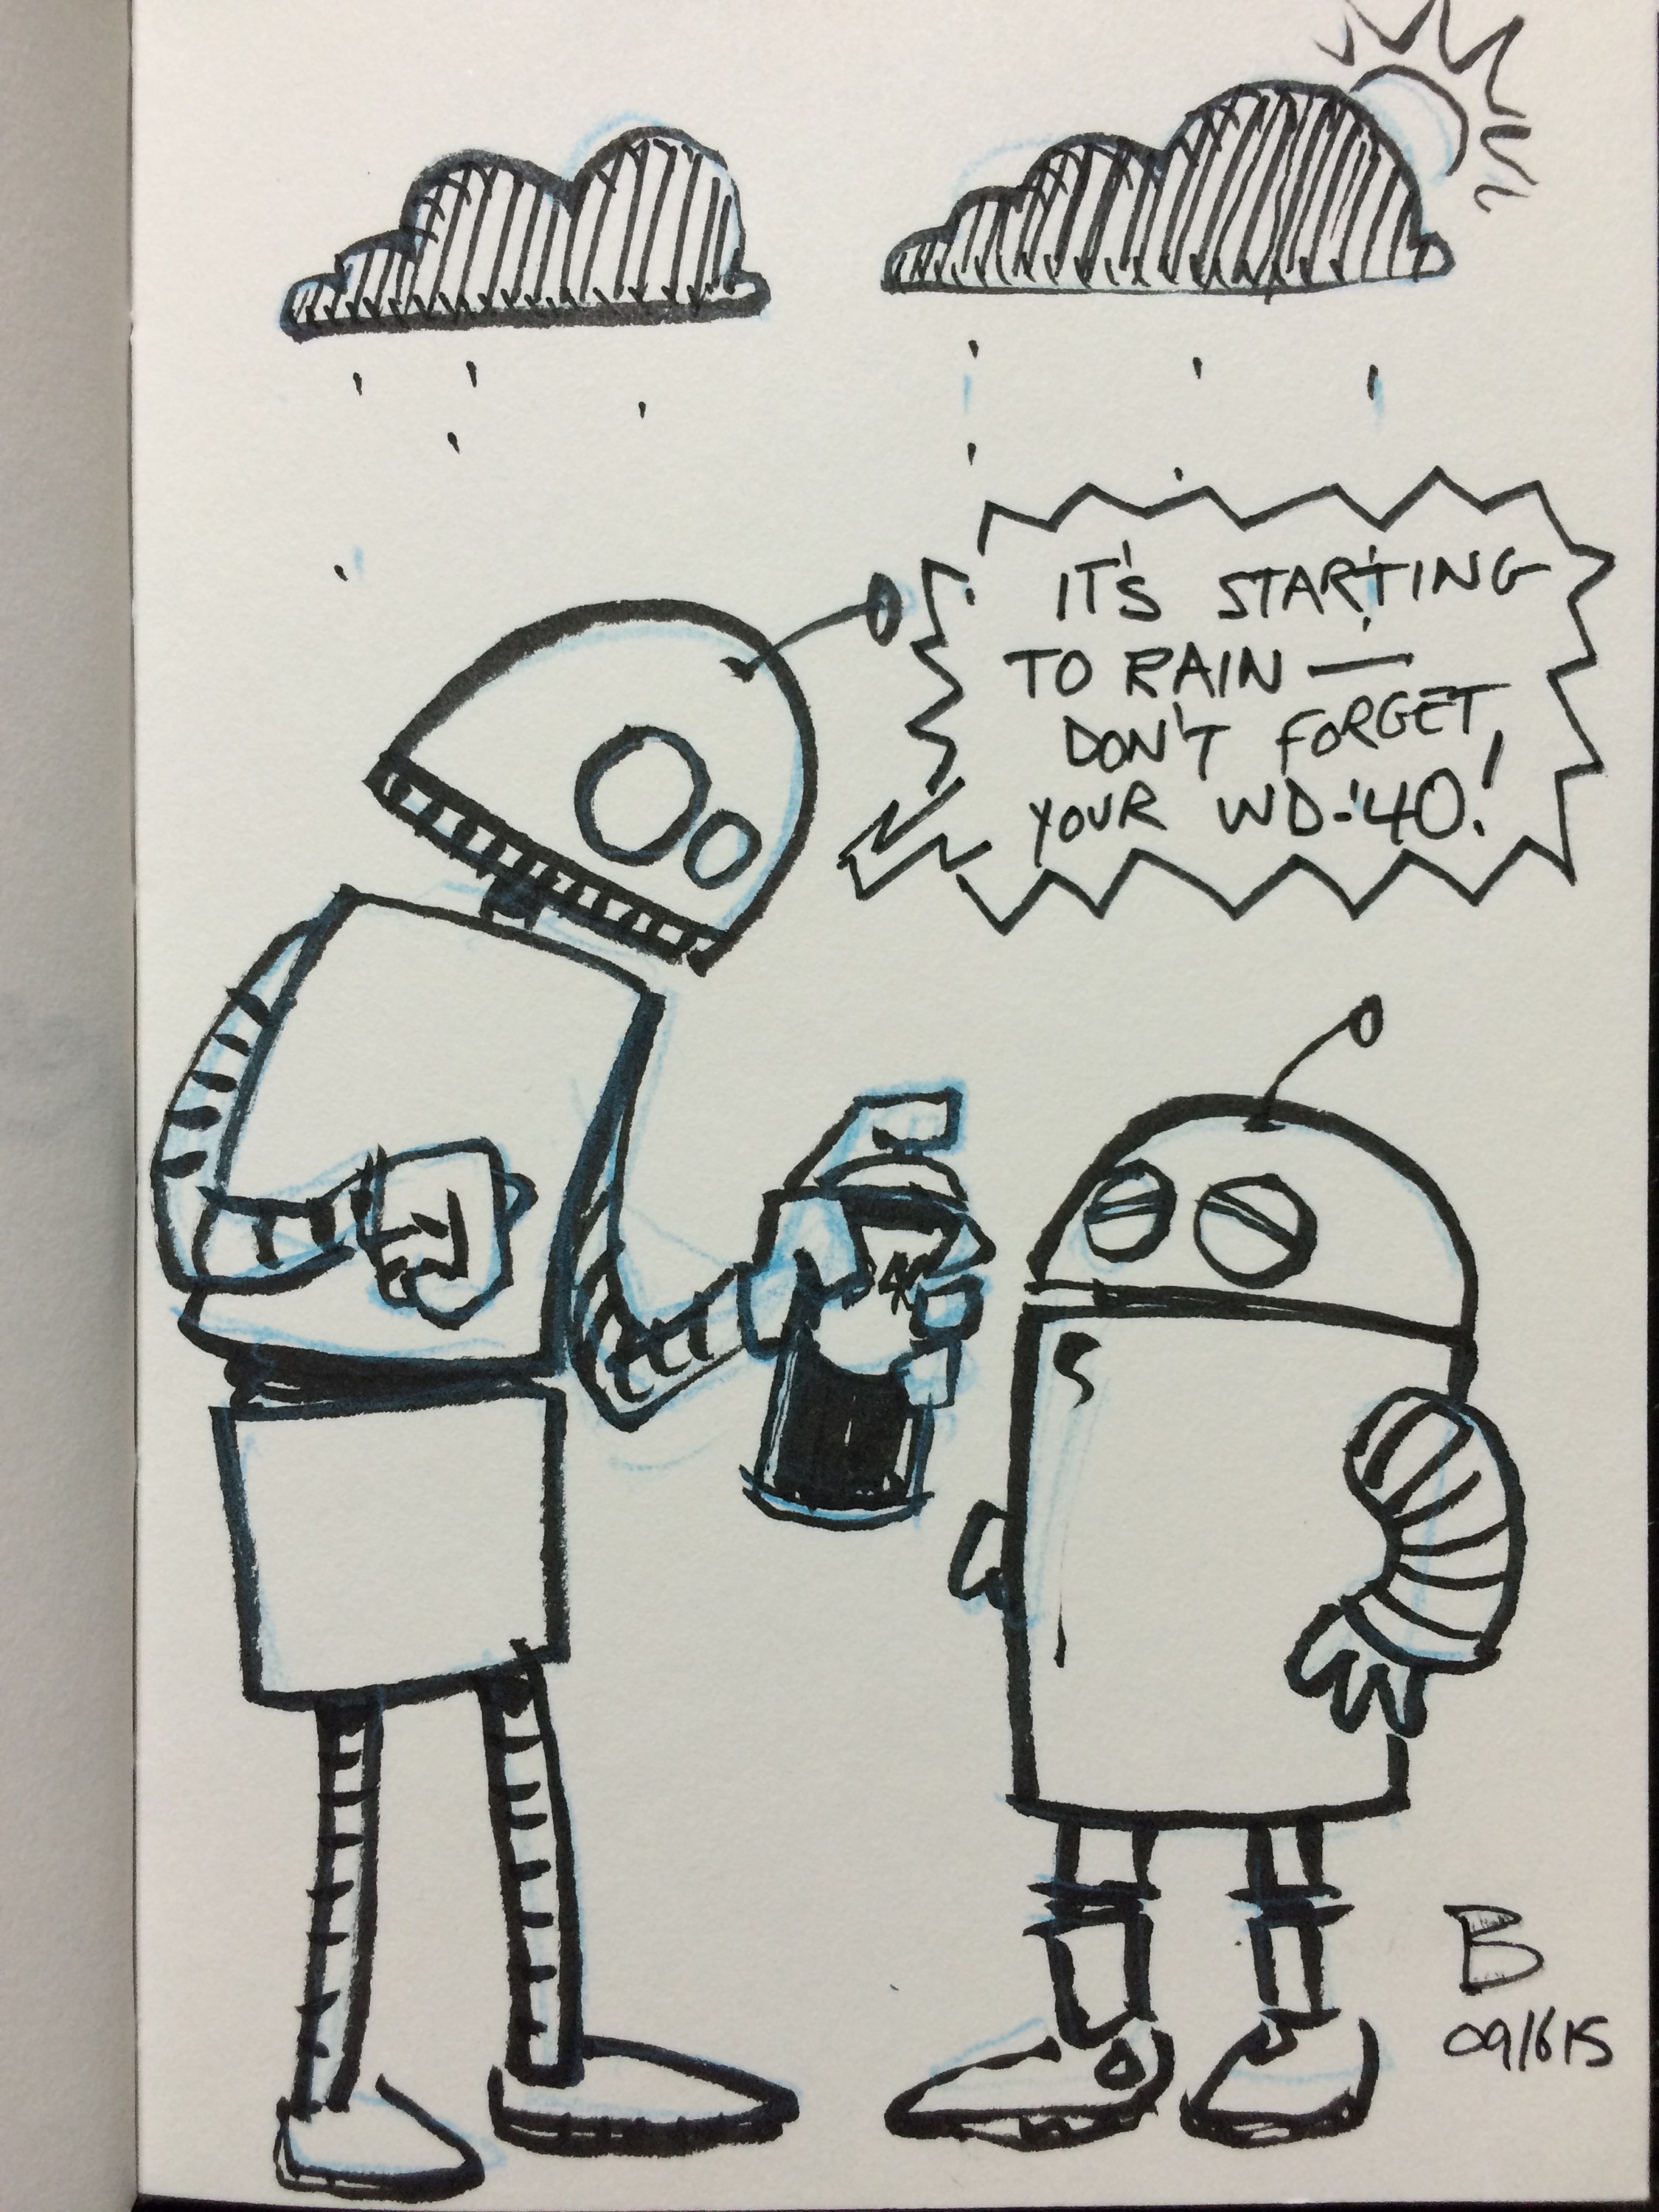 IT'S STARTING
TO RAIN —
DON'T FORGET
YOUR WD-40!
B
09/615